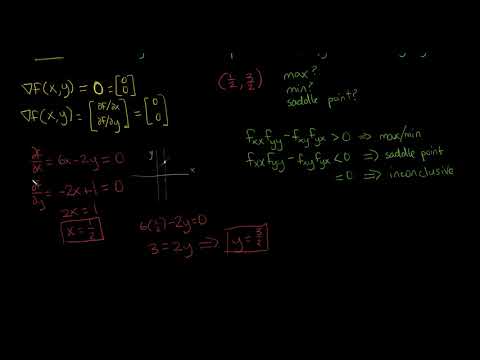 ∇f(x,y) = 0 = [0 0]
∇f(x,y) = [∂f/∂x ∂f/∂y] = [0 0]
∂f/∂x = 6x-2y = 0
∂f/∂y = -2x+1 = 0
2x = 1
x = 1/2
y
x
6(1/2)-2y=0
3=2y ⟹ y = 3/2
(1/2, 3/2)
max?
min?
saddle point?
fxx fyy - fxy fyx > 0 ⟹ max/min
fxx fyy - fxy fyx < 0 ⟹ saddle point
= 0 ⟹ inconclusive